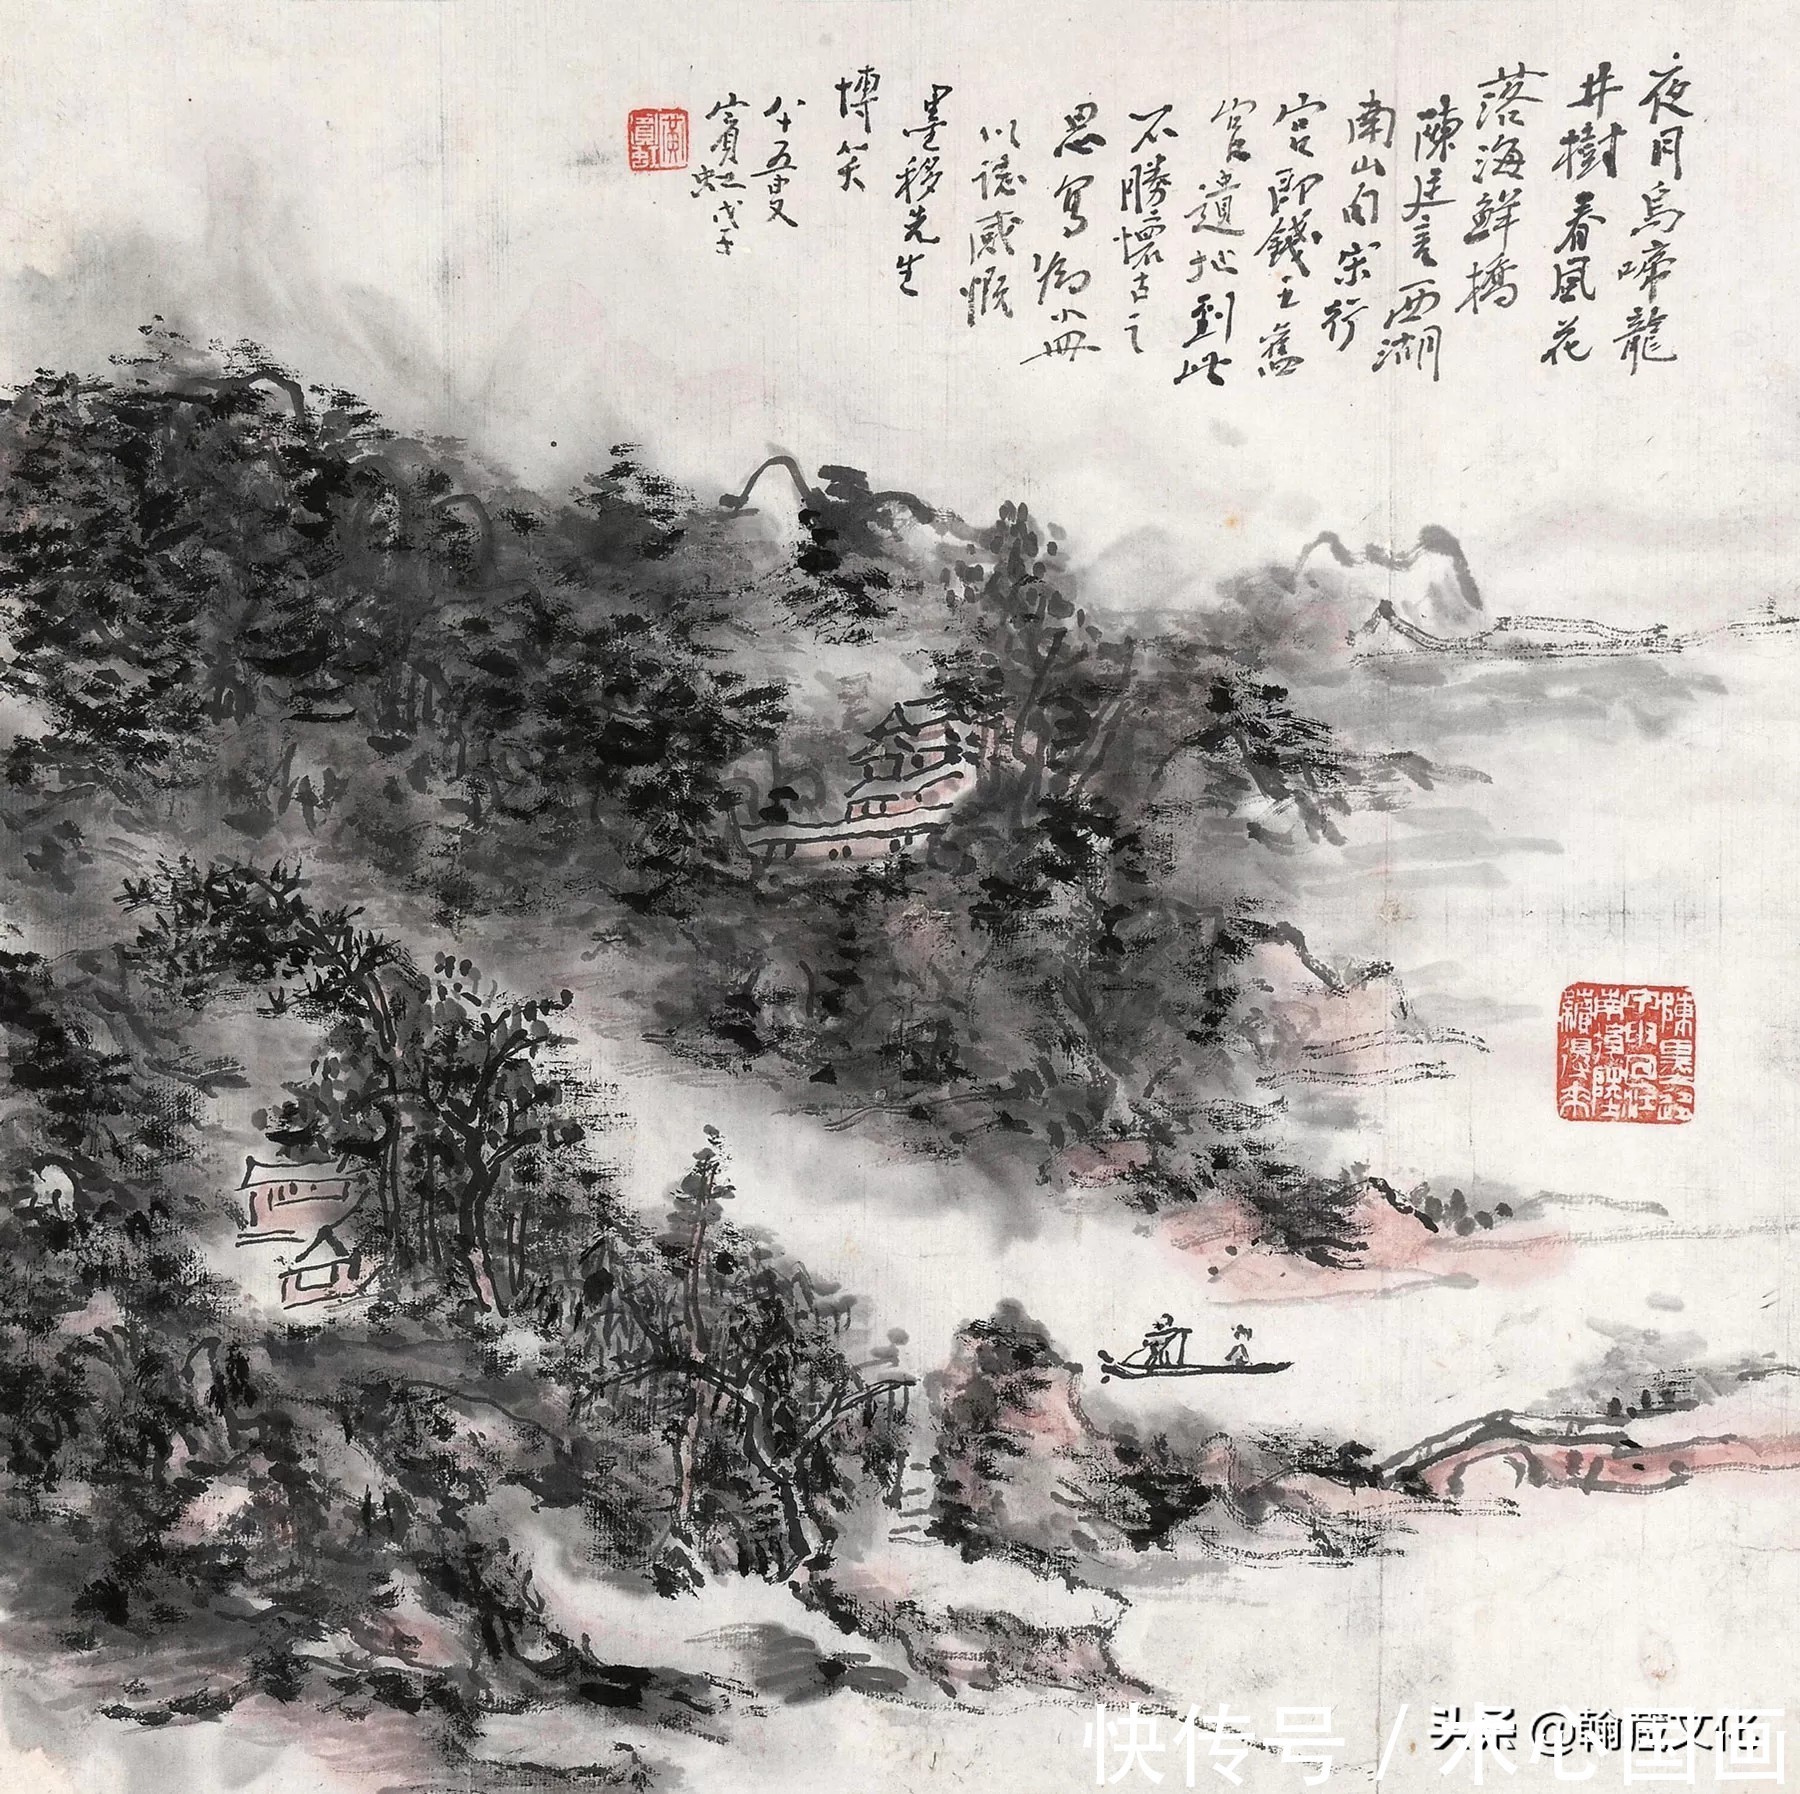 夜月烏啼龍
井樹春風花
落海鮮橋
陳廷言西湖
南山 宋行
宮即錢王舊
宮遺址到此
不勝懷古之
思寫為小冊
以誌感慨
墨移先生
博笑
八十五叟
賓虹戊子
黃賓虹
头条 @翰 文化
快传号 / 心国画